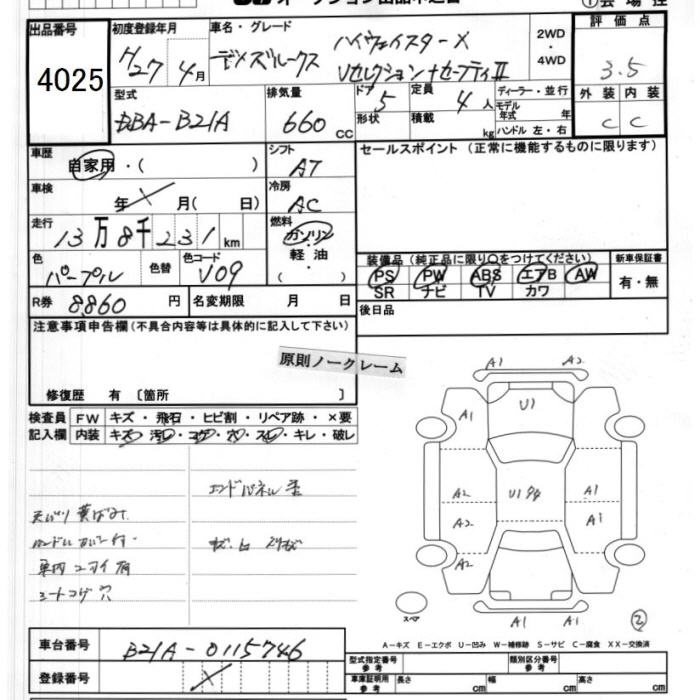 ①会場控
出品番号
4025
初度登録年月
H27年 4月
車名・グレード
デイズルークス
ハイウェイスターX
Vセレクション+セーフティII
2WD
・
4WD
評価点
3.5
外装 内装
C C
型式
DBA-B21A
排気量
660cc
ドア
5
形状
定員
4人
積載
kg
ディーラー・並行
モデル年式 年
ハンドル 左・右
車歴
自家用・( )
シフト
AT
車検
年 月( 日)
冷房
AC
走行
13万8千231km
燃料
ガソリン
軽油
・
色
パープル
色替
色コード
V09
R券
8,860円
名変期限 月 日
セールスポイント (正常に機能するものに限ります)
装備品 (純正品に限り○をつけてください)
PS PW ABS エアB AW
SR ナビ TV カワ
新車保証書
有・無
後日品
注意事項申告欄(不具合内容等は具体的に記入して下さい)
原則ノークレーム
修復歴 有 〔箇所 〕
検査員記入欄
FW キズ・飛石・ヒビ割・リペア跡・×要
内装 キズ・汚れ・コゲ・穴・スレ・キレ・破レ
エンドパネル
天張り 黄ばみ
ハンドルカバー付
車内
シートコゲ穴
A1 A2
A1 U1
A2 U1 A1
A2 A1
A2
スペア
A1 A1
②
A-キズ E-エクボ U-凹み W-補修跡 S-サビ C-腐食 XX-交換済
車台番号
B21A-0115746
登録番号
型式指定番号
参考
類別区分番号
参考
車庫証明用
参考
長さ cm 幅 cm 高さ cm